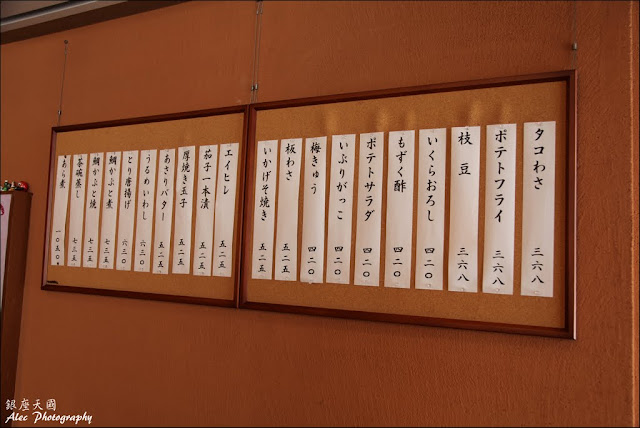 タコわさ 三六八
ポテトフライ 三六八
枝豆 三六八
いくらおろし 四二〇
もずく酢 四二〇
ポテトサラダ 四二〇
いぶりがっこ 四二〇
梅きゅう 四二〇
板わさ 五二五
いかげそ焼き 五二五
エイヒレ 五二五
茄子一本漬 五二五
厚焼き玉子 五二五
あさりバター 五二五
うるめいわし 六三〇
とり唐揚げ 六三〇
鯛かぶと煮 七三五
鯛かぶと焼 七三五
茶碗蒸し 七三五
あら煮 一〇五〇
銀座天國
Alec Photography